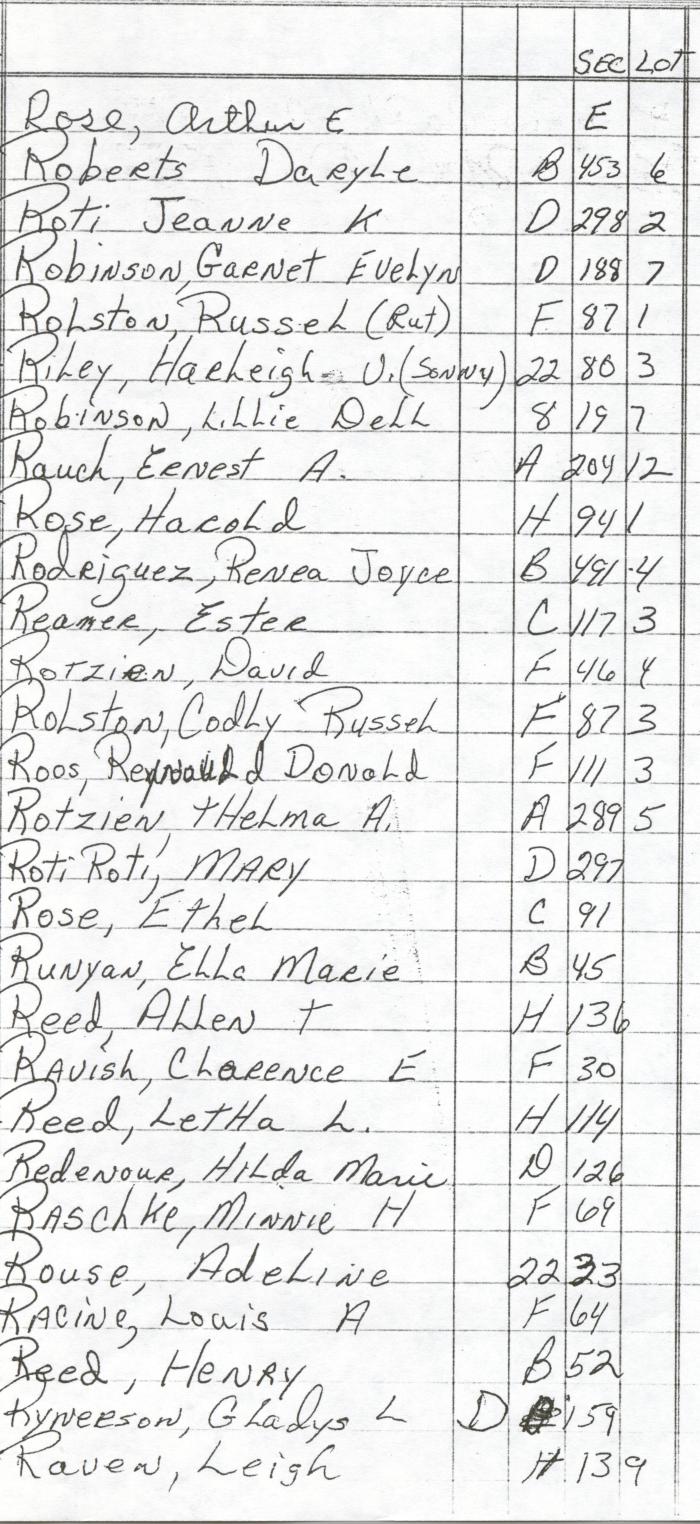 SEC LOT
Rose, Arthur E E
Roberts Daryle B 453 6
Roti Jeanne K D 298 2
Robinson, Garnet Evelyn D 188 7
Rolston, Russel (Rut) F 87 1
Riley, Harleigh U. (Sonny) 22 80 3
Robinson, Lillie Dell 8 19 7
Rauch, Ernest A. A 204 12
Rose, Harold H 94 1
Rodriguez, Renea Joyce B 491 4
Reamer, Ester C 117 3
Rotzien, David F 46 4
Rolston, Codly Russel F 87 3
Roos, Donald F 111 3
Rotzien, Thelma A. A 289 5
Roti Roti, Mary D 297
Rose, Ethel C 91
Runyan, Ella Marie B 45
Reed, Allen T H 136
Ravish, Clarence E F 30
Reed, Letha L. H 114
Redenour, Hilda Marie D 126
Raschke, Minnie H F 69
Rouse, Adeline 22 23
Racine, Louis A F 64
Reed, Henry B 52
Rynerson, Gladys L D 159
Raven, Leigh H 139